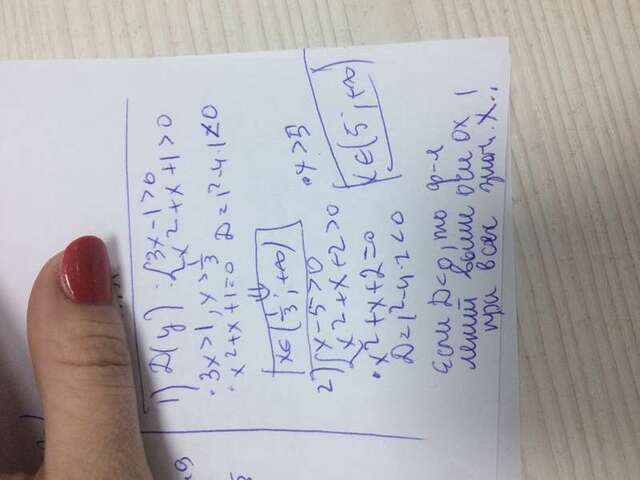 1) D(y) : { 3x-1>0
x²+x+1>0
• 3x>1, x>1/3
• x²+x+1=0 D=1²-4·1<0
⇓
x∈(1/3; +∞)
2) { x-5>0
x²+x+2>0
• x>5
• x²+x+2=0
x∈(5; +∞)
D=1²-4·2<0
Если D<0, то ф-я
лежит выше оси OX
при всех знач. X..!